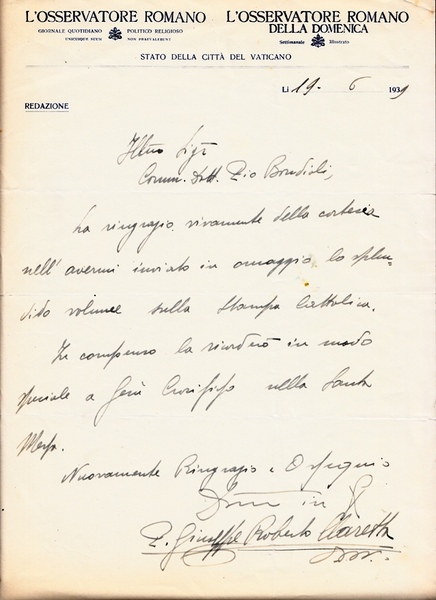 L'OSSERVATORE ROMANO
GIORNALE QUOTIDIANO POLITICO RELIGIOSO
UNICUIQUE SUUM NON PRAEVALEBUNT
L'OSSERVATORE ROMANO
DELLA DOMENICA
Settimanale Illustrato
STATO DELLA CITTÀ DEL VATICANO
Li 19. 6 1939
REDAZIONE
Illmo Sigr
Comm. Dott. Pio Bondioli,
La ringrazio vivamente della cortesia
nell'avermi inviato in omaggio lo splen-
dido volume sulla Stampa Cattolica.
In compenso la ricorderò in modo
speciale a Gesù Crocifisso nella Santa
Messa.
Nuovamente Ringrazio e Ossequio
in
P. Giuseppe Roberto Claretta